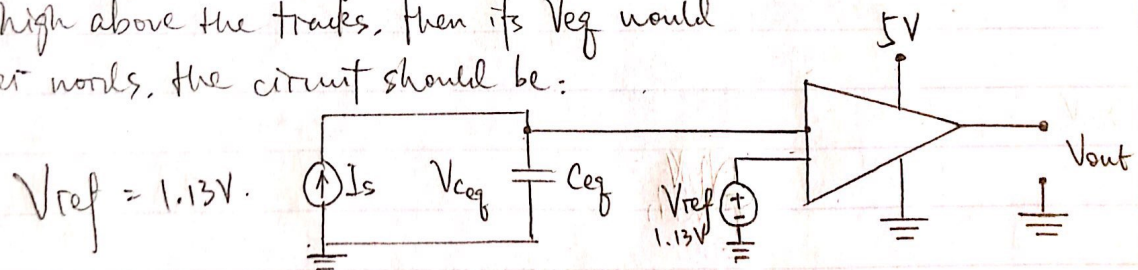 high above the tracks, then its Veq would
er words, the circuit should be:
5V
Vref = 1.13V.
Is
Vceq
Ceq
Vref
1.13V
+
-
Vout